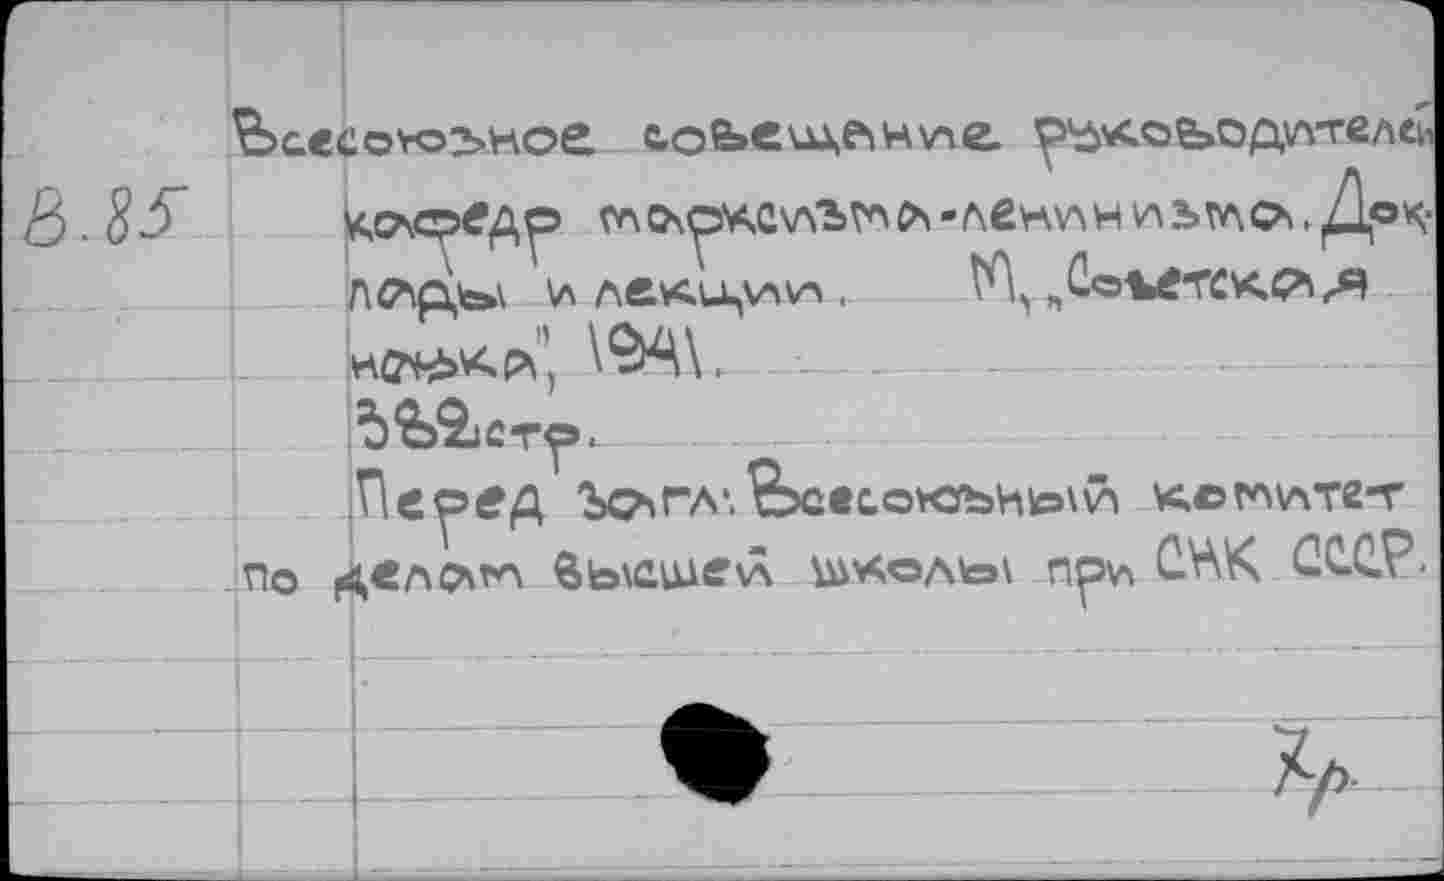 Всесоюзное совещание руководителей
В.85 кафедр марксизма-ленинизма. Док-
лады и лекции. М, „Советская
наука", 1941.
332 стр.
Перед загл: Всесоюзный комитет
по делам высшей школы при СНК СССР.
Хр.